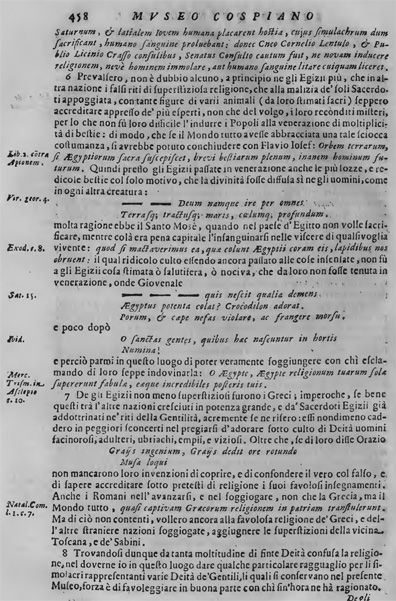 458 MVSEO COSPIANO
Saturnum, & latialem Iovem humana placarent hostia, cujus simulachrum dum
sacrificant, humano sanguine proluebant: donec Cneo Cornelio Lentulo, & Pu-
blio Licinio Crasso consulibus, Senatus Consulto cautum fuit, ne novam inducere
religionem, nevè hominem immolare, aut humano sanguine litare cuiquam liceret.
6 Prevalsero, non è dubbio alcuno, a principio ne gli Egizii più, che in al-
tra nazione i falsi riti di superstiziosa religione, che alla malizia de' soli Sacerdo-
ti appoggiata, con tante figure di varii animali (da loro stimati sacri) seppero
accreditare appresso de' più esperti, non che del volgo, i loro reconditi misteri,
per lo che non fù loro difficile l'indurre i Popoli alla venerazione di moltiplici-
tà di bestie: di modo, che se il Mondo tutto avesse abbracciata una tale sciocca
costumanza, si avrebbe potuto conchiudere con Flavio Josef: Orbem terrarum,
Lib. 2. cõtra
Apionem.
si Ægyptiorum sacra suscepisset, brevi bestiarum plenum, inanem hominum fu-
turum. Quindi presso gli Egizii passate in venerazione anche le più sozze, e re-
dicole bestie col solo motivo, che la divinità fosse diffusa sì ne gli uomini, come
in ogni altra creatura:
Vir. geor. 4.
Deum namque ire per omnes
Terrasq; tractusq; maris, cælumq; profundum.
molta ragione ebbe il Santo Mosè, quando nel paese d'Egitto non volle sacri-
ficare, mentre colà era pena capitale l'insanguinarsi nelle viscere di qualsivoglia
Exod. c. 8.
vivente: quod si mactaverimus ea, quæ colunt Ægyptii coram eis, lapidibus nos
obruent: il qual ridicolo culto essendo ancora passato alle cose insensate, non fù
a gli Egizii cosa stimata ò salutifera, ò nociva, che da loro non fosse tenuta in
venerazione, onde Giovenale
Sat. 15.
quis nescit qualia demens
Ægyptus potenta colat? Crocodilon adorat.
Porum, & cæpe nefas violare, ac frangere morsu.
e poco dopò
Ibid.
O sanctas gentes, quibus hac nascuntur in hortis
Numina!
e perciò parmi in questo luogo di poter veramente soggiungere con chi escla-
Merc.
Trism. in
Asclepio
c. 10.
mando di loro seppe indovinarla: O Ægypte, Ægypte religionum tuarum sola
supererunt fabula, eaque incredibiles posteris tuis.
7 De gli Egizii non meno superstiziosi furono i Greci; imperoche, se bene
questi trà l'altre nazioni cresciuti in potenza grande, e da' Sacerdoti Egizii già
addottrinati ne' riti della Gentilità, acremente se ne risero: essi nondimeno cad-
dero in peggiori sconcerti nel pregiarsi d'adorare sotto culto di Deità uomini
facinorosi, adulteri, ubriachi, empii, e viziosi. Oltre che, se di loro disse Orazio
Graijs ingenium, Graijs dedit ore rotundo
Musa loqui
non mancarono loro invenzioni di coprire, e di confondere il vero col falso, e
di sapere accreditare sotto pretesti di religione i suoi favolosi insegnamenti.
Anche i Romani nell'avanzarsi, e nel soggiogare, non che la Grecia, ma il
Natal. Com.
l. 1. c. 7.
Mondo tutto, quasi captivam Græcorum religionem in patriam transtulerunt.
Ma di ciò non contenti, vollero ancora alla favolosa religione de' Greci, e del-
l'altre straniere nazioni soggiogate, aggiugnere le superstizioni della vicina
Toscana, e de' Sabini.
8 Trovandosi dunque da tanta moltitudine di finte Deità confusa la religio-
ne, nel doverne io in questo luogo dare qualche particolare ragguaglio per li si-
molacri rappresentanti varie Deità de' Gentili, li quali si conservano nel presente
Museo, forza è di favoleggiare in buona parte con chi sin'hora ne hà ragionato.
Degli